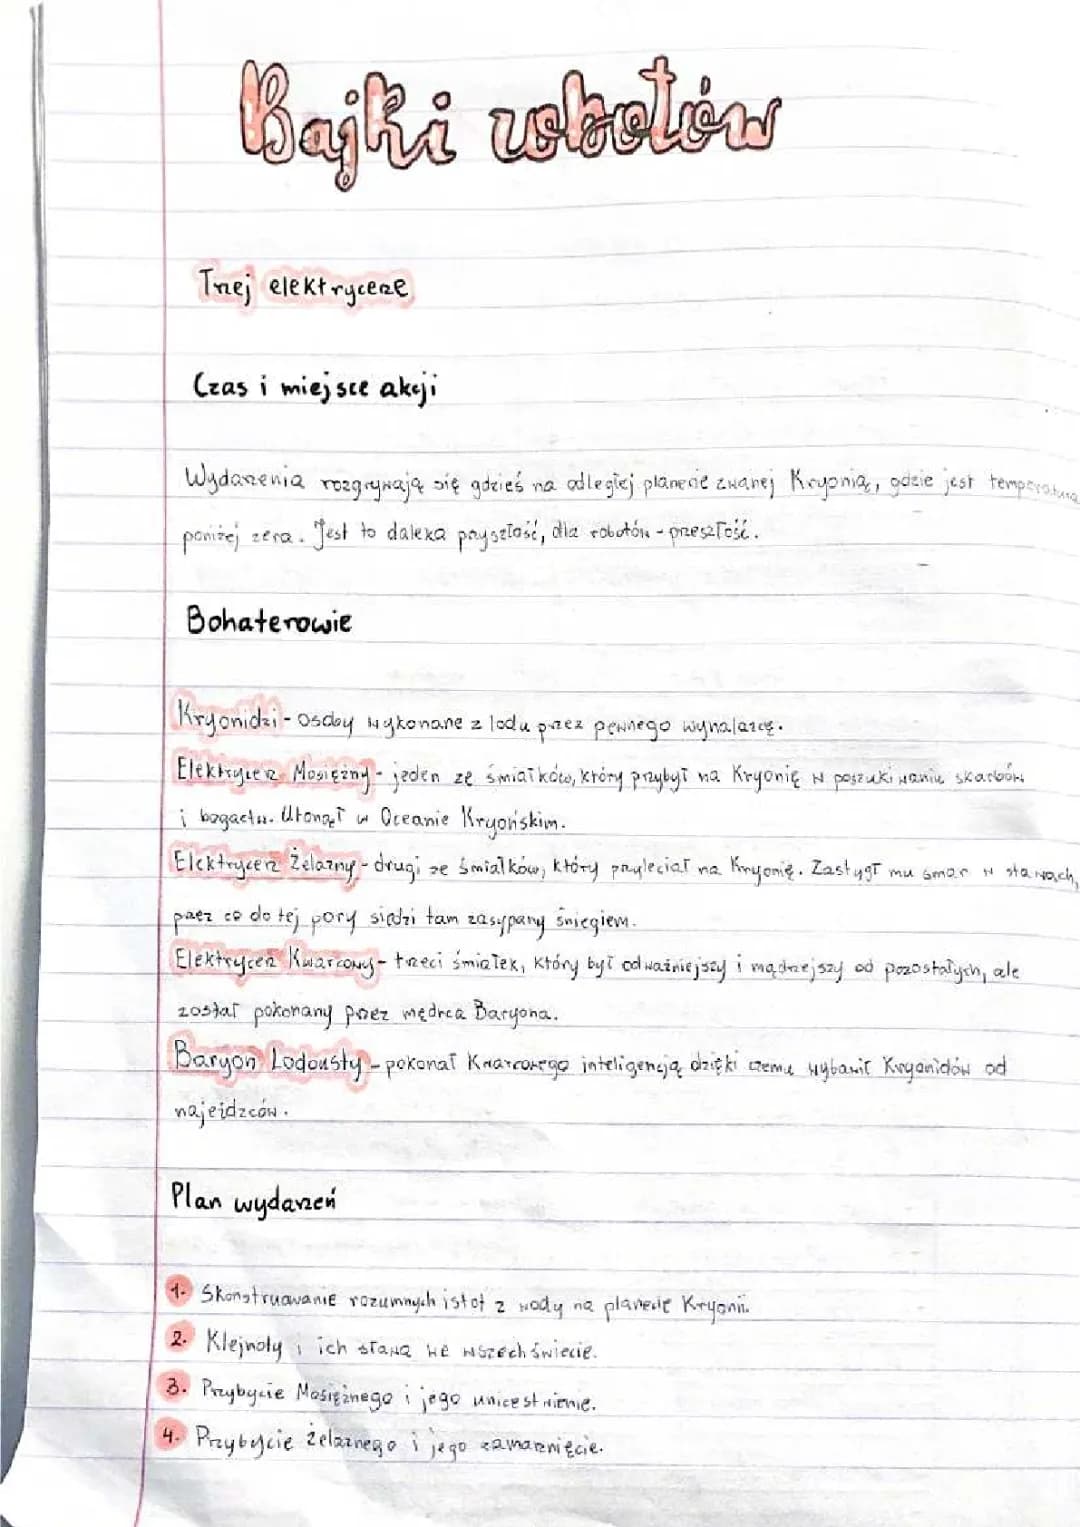 Bajki robotów
Trzej elektrycerze
Czas i miejsce akcji
Wydarzenia rozgrywają się gdzieś na odległej planecie zwanej Kryonią, gdzie jest temperatura
poniżej zera. Jest to daleka przyszłość, dla robotów - przeszłość.
Bohaterowie
Kryonidzi - osoby wykonane z lodu przez pewnego wynalazcę.
Elektrycerz Mosiężny - jeden ze śmiałków, który przybył na Kryonię w poszukiwaniu skarbów
i bogactw. Utonął w Oceanie Kryońskim.
Elektrycerz Żelazny - drugi ze śmiałków, który przyleciał na Kryonię. Zastygł mu smar w stawach,
przez co do tej pory siedzi tam zasypany śniegiem.
Elektrycerz Kwarcowy - trzeci śmiałek, który był odważniejszy i mądrzejszy od pozostałych, ale
został pokonany przez mędrca Baryona.
Baryon Lodousty - pokonał Kwarcowego inteligencją dzięki czemu wybawił Kryonidów od
najeźdzców.
Plan wydarzeń
1. Skonstruowanie rozumnych istot z wody na planecie Kryonii.
2. Klejnoty i ich sława we wszechświecie.
3. Przybycie Mosiężnego i jego unicestwienie.
4. Przybycie żelaznego i jego zamarznięcie.